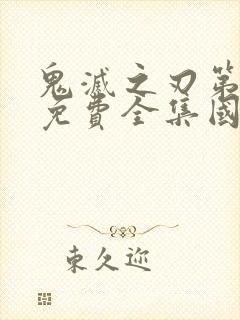 鬼滅之刃第
免費全集國
東久迩